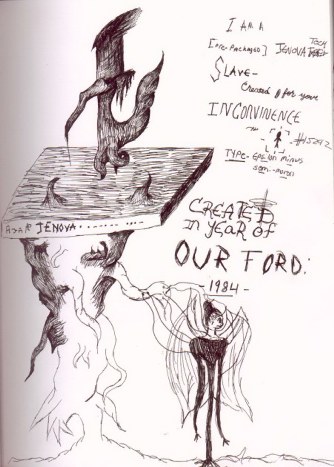 I AM A
[PRE-PACKAGED] JENOVA TECH
SLAVE-
Created for your
INCONVINENCE
TYPE- EPSILON minus
semi-moron
CREATED
IN YEAR OF
OUR FORD:
- 1984 -
JENOVA